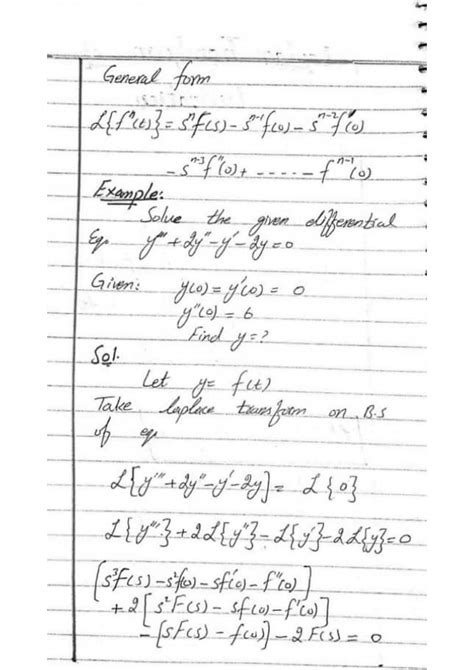 General form
L{fⁿ(t)} = SⁿF(s) - Sⁿ⁻¹f(0) - Sⁿ⁻²f'(0)
- Sⁿ⁻³f''(0) + ----- - fⁿ⁻¹(0)
Example:
Solve the given differential
Eq. y''' + 2y'' - y' - 2y = 0
Given: y(0) = y'(0) = 0
y''(0) = 6
Find y = ?
Sol.
Let y = f(t)
Take laplace transform on B.S
of eq.
L[y''' + 2y'' - y' - 2y] = L{0}
L{y'''} + 2L{y''} - L{y'} - 2L{y} = 0
[s³F(s) - s²f(0) - sf'(0) - f''(0)]
+ 2[s²F(s) - sf(0) - f'(0)]
- [sF(s) - f(0)] - 2F(s) = 0